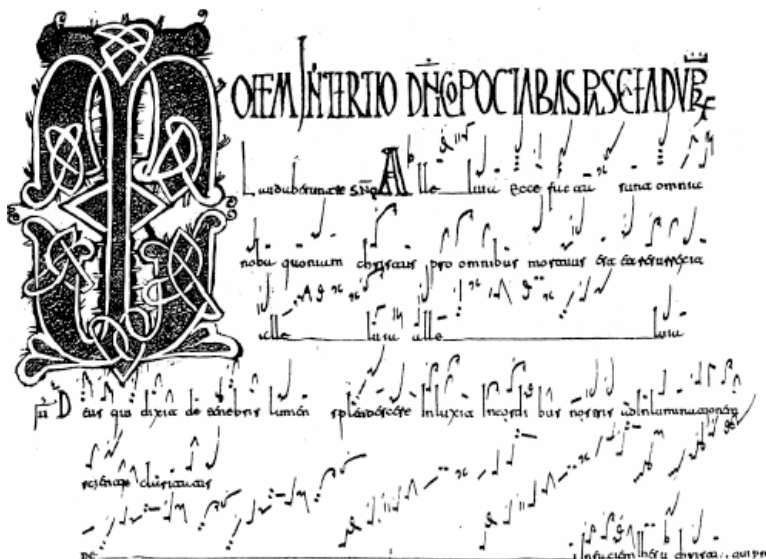 OFFM IN TERTIO DNCO P OCTABAS PASCE AD VPR
Alleluia Ecce facta sunt omnia
noba quoniam christus pro omnibus mortuus est et resurrexit
alle luia alle luia
Deus qui dixit de tenebris lumen splendescere inluxit in cordibus nostris ad inluminationem
scientie claritatis
De in faciem ihesu christi. qui pr